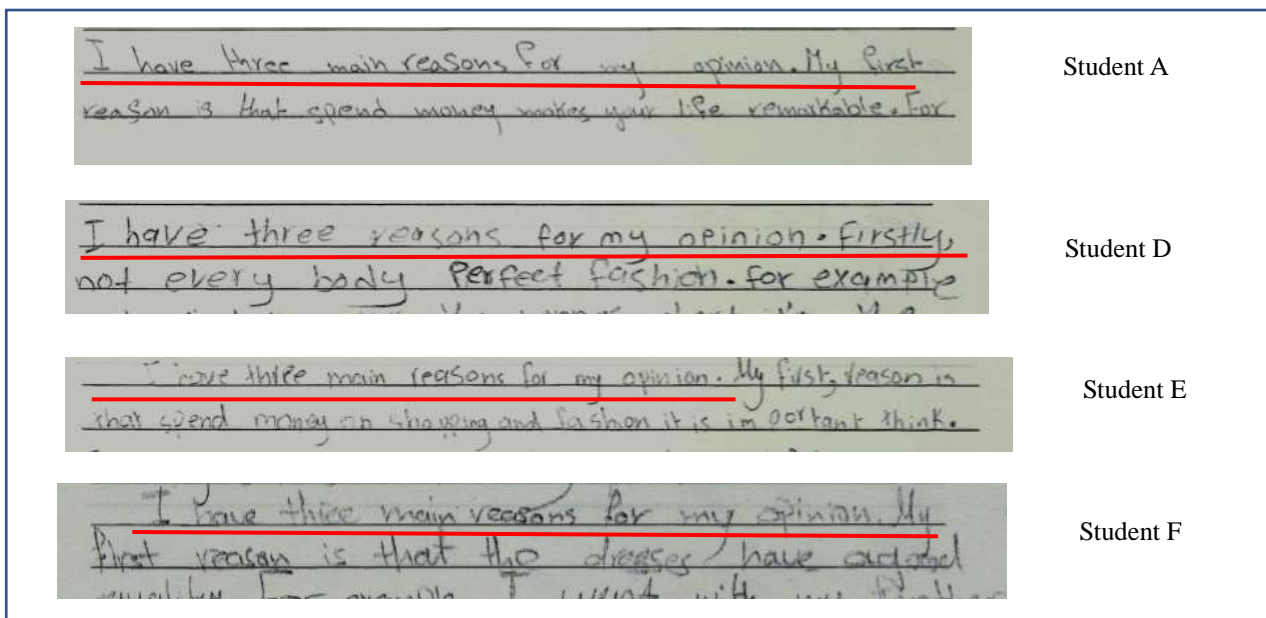 I have three main reasons for my opinion. My first
reason is that spend money makes your life remarkable. For
Student A
I have three reasons for my opinion. Firstly,
not every body Perfect fashion. for example
Student D
I have three main reasons for my opinion. My first, reason is
that spend money on shopping and fashion it is im portant think.
Student E
I have three main reasons for my opinion. My
first reason is that the dresses have a good
quality For example I went with my
Student F